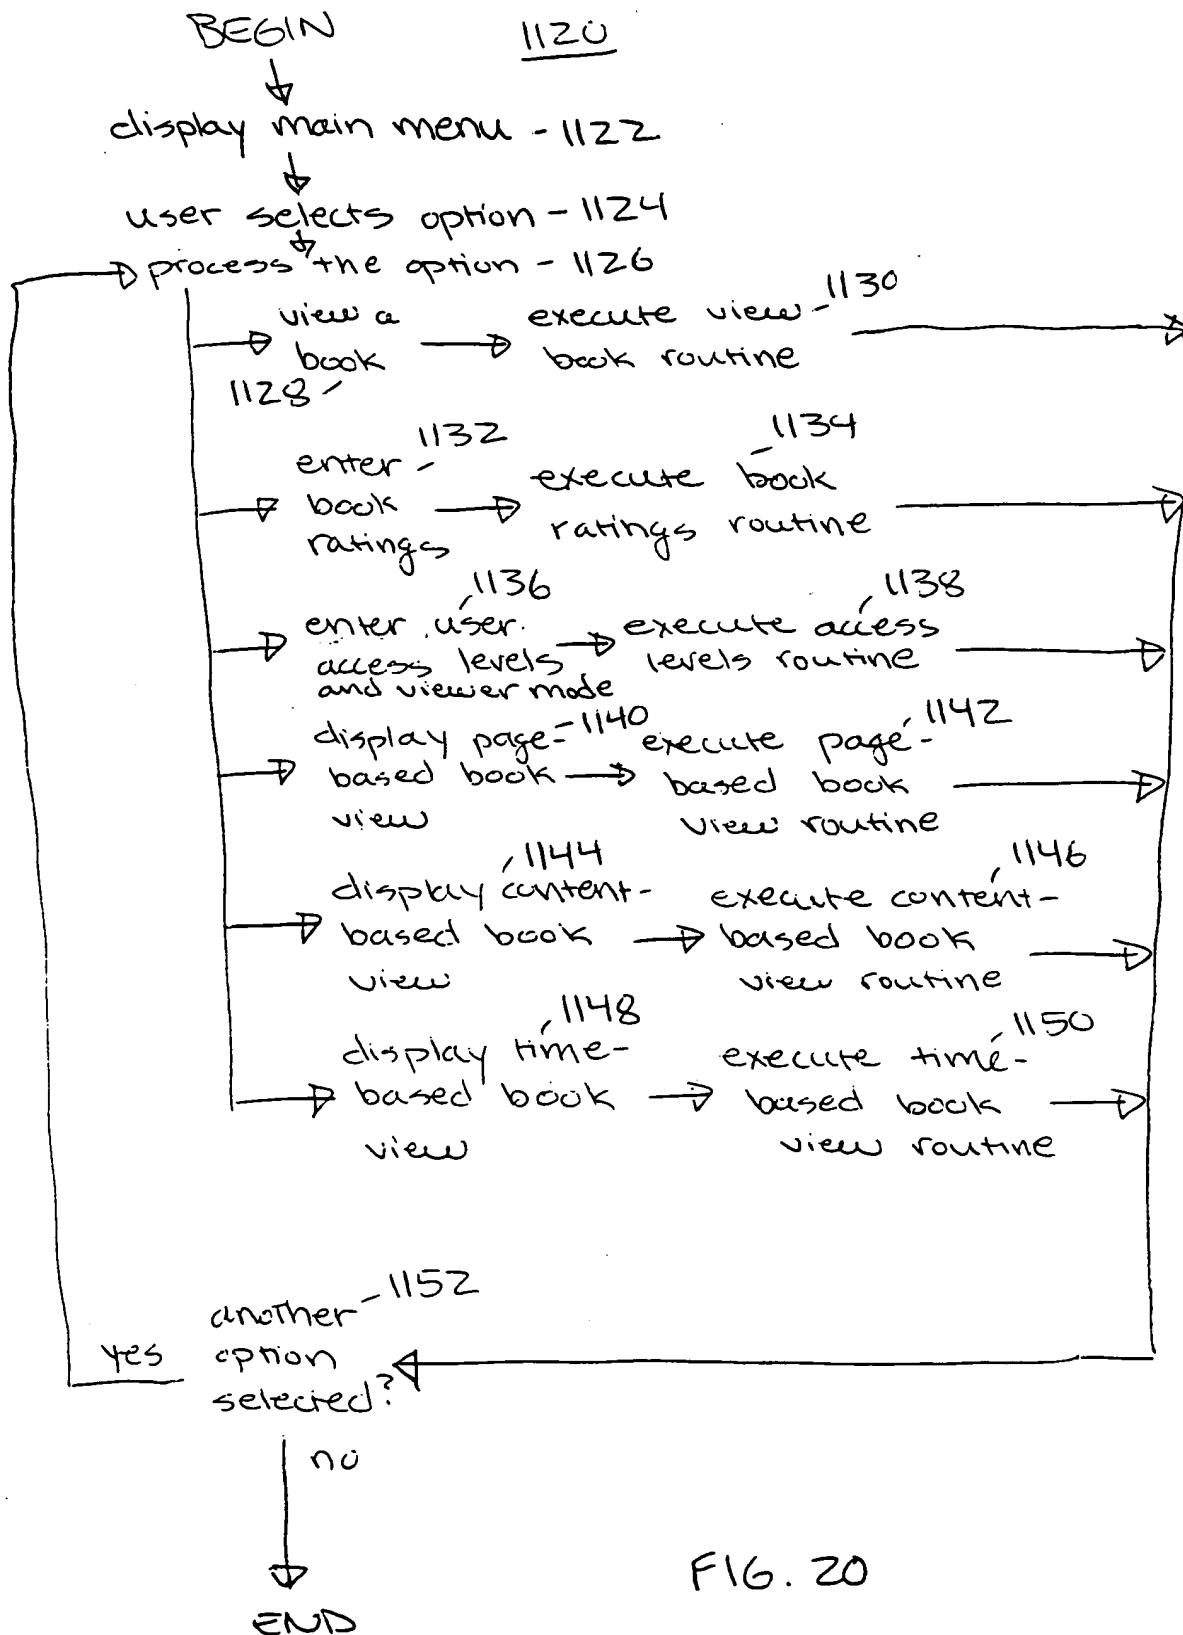 BEGIN
1120
display main menu - 1122
user selects option - 1124
process the option - 1126
view a
book
1128
execute view - 1130
book routine
enter - 1132
book
ratings
execute book 1134
ratings routine
1136
enter user
access levels
and viewer mode
1138
execute access
levels routine
display page- 1140
based book
view
execute page- 1142
based book
view routine
1144
display content-
based book
view
1146
execute content-
based book
view routine
1148
display time-
based book
view
1150
execute time-
based book
view routine
another - 1152
option
selected?
yes
no
END
FIG. 20